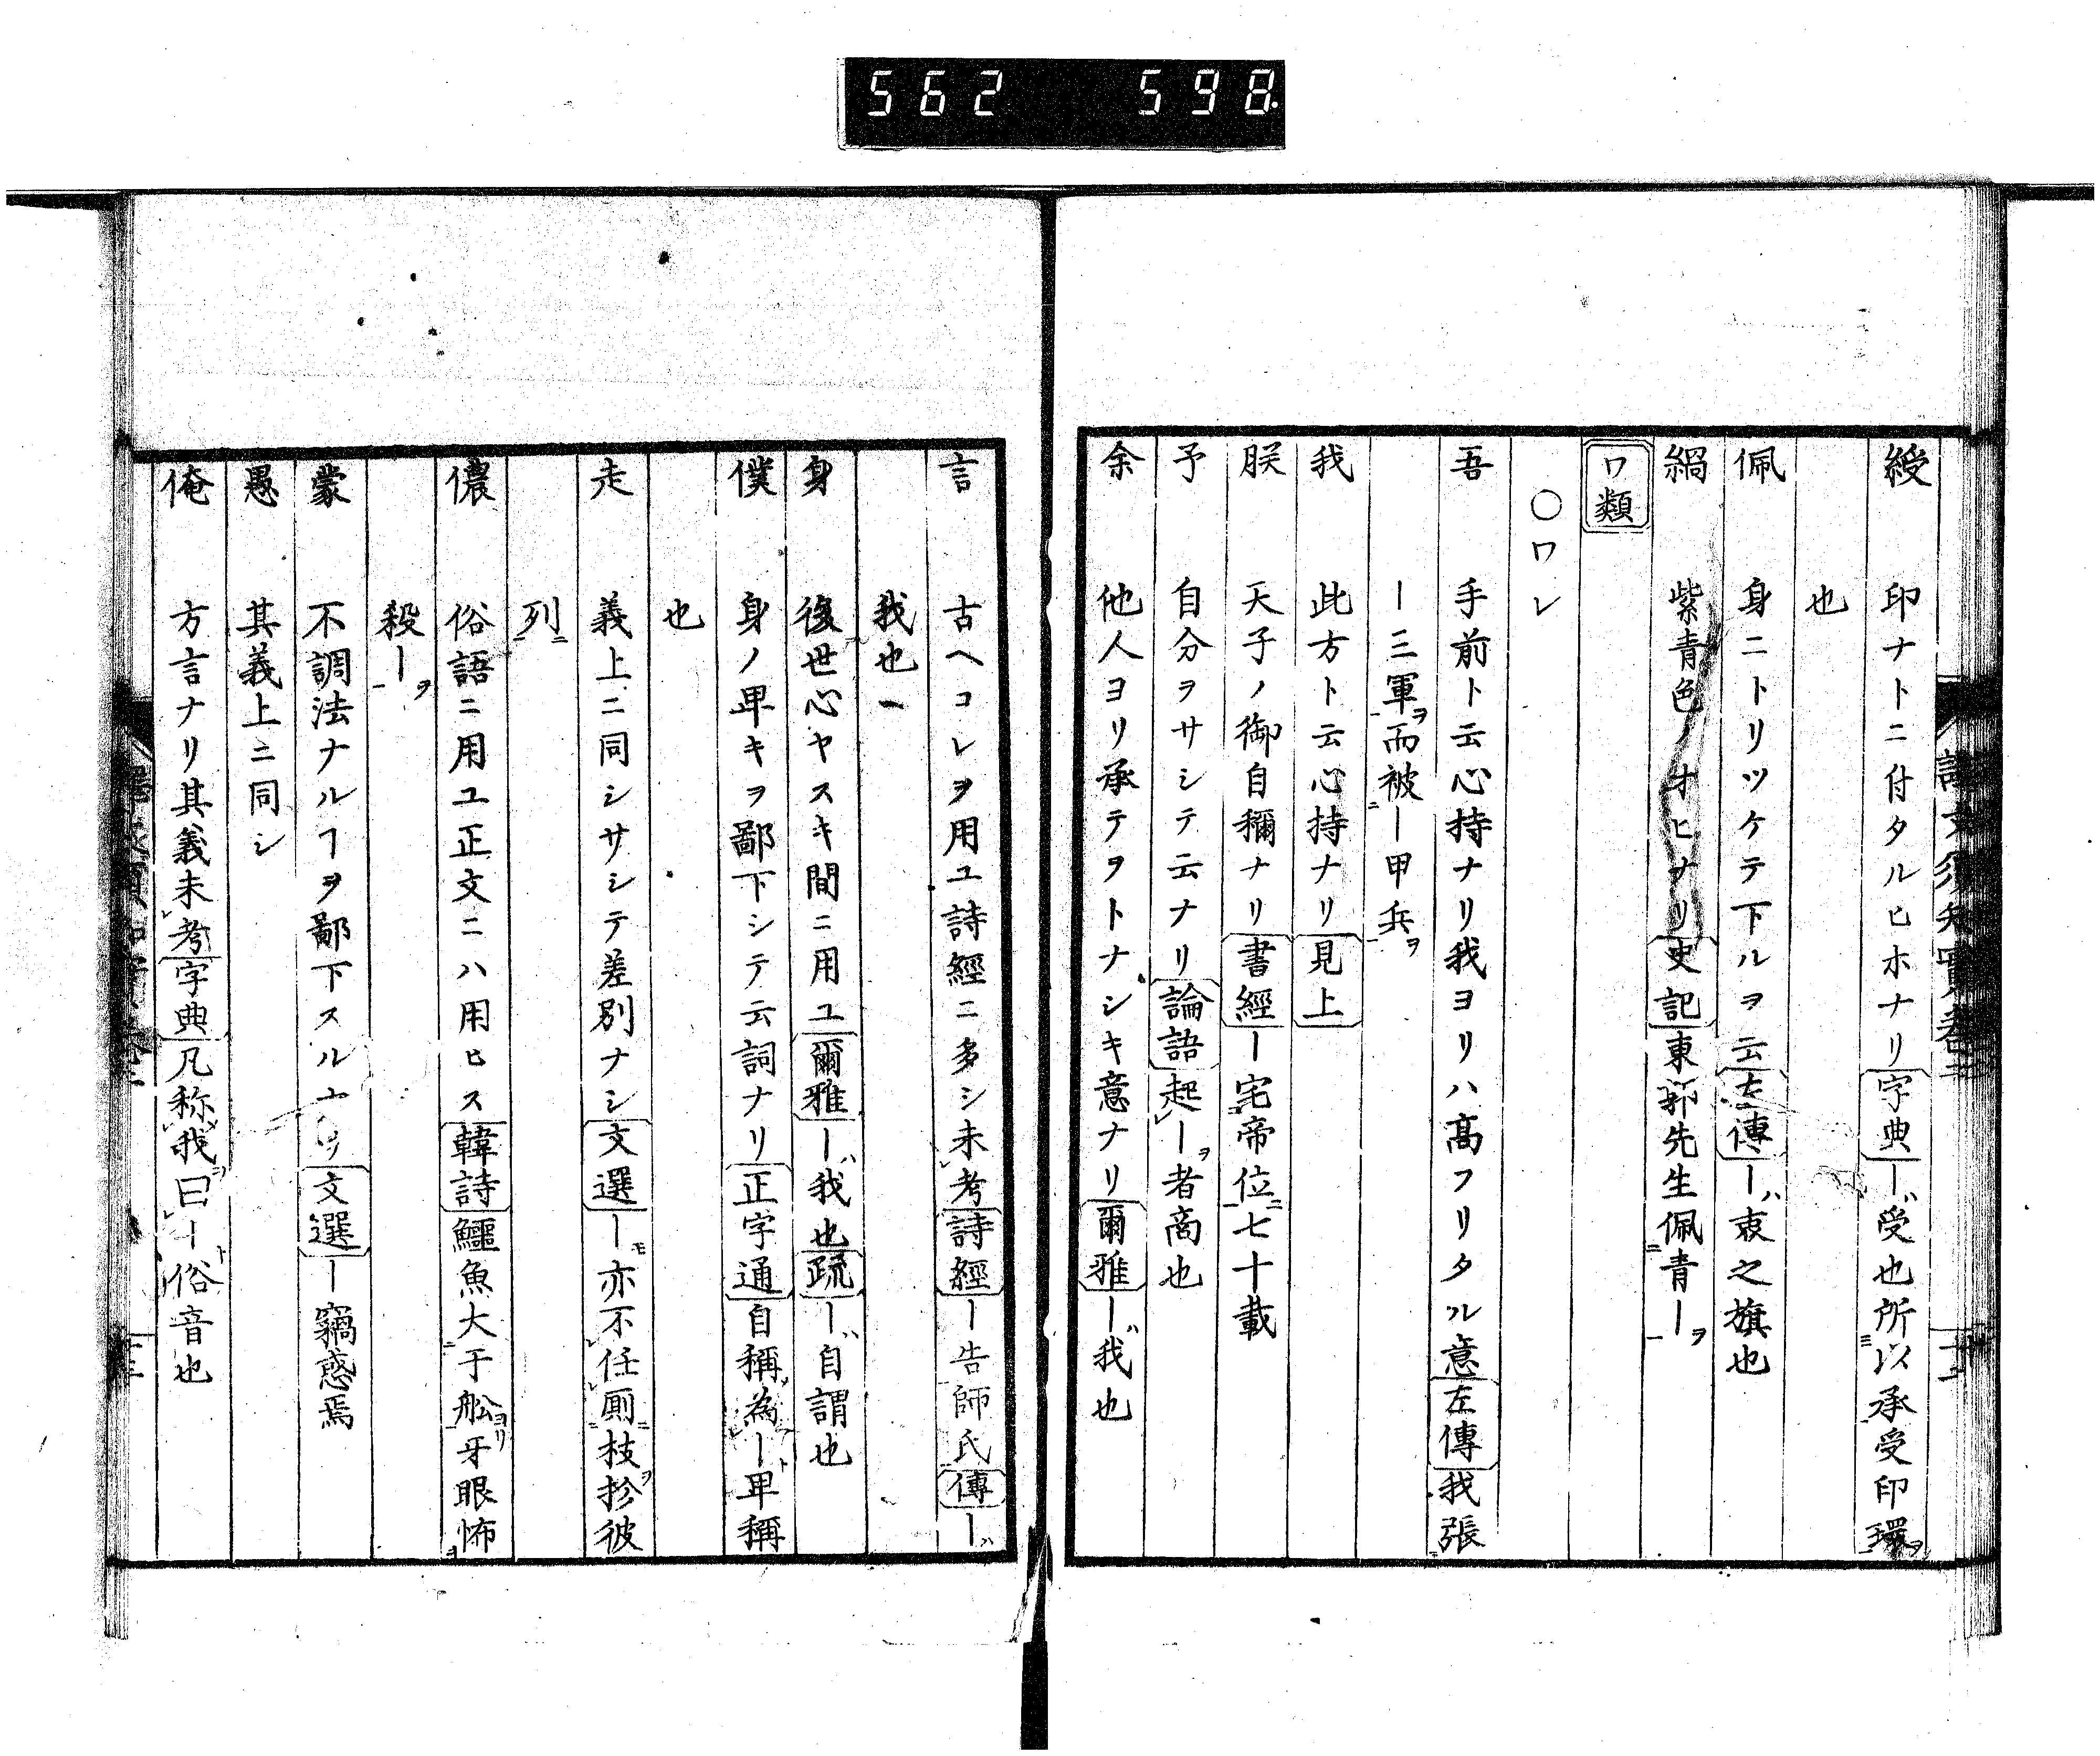 562 598
綬 印ナトニ付タルヒホナリ字典ー受也所以承受印環
也
佩 身ニトリツケテ下ルヲ云左傳ー衷之旗也
緺 紫青色ノオヒナリ史記東郭先生佩青ー
ワ類
○ワレ
吾 手前ト云心持ナリ我ヨリハ高フリタル意左傳我張
ー三軍而被ー甲兵
我 此方ト云心持ナリ見上
朕 天子ノ御自稱ナリ書經ー宅帝位七十載
予 自分ヲサシテ云ナリ論語起ー者商也
余 他人ヨリ承テヲトナシキ意ナリ爾雅ー我也
言 古ヘコレヲ用ユ詩經ニ多シ未考詩經ー告師氏傳ー
我也
身 後世心ヤスキ間ニ用ユ爾雅ー我也疏ー自謂也
僕 身ノ卑キヲ鄙下シテ云詞ナリ正字通自稱為ー卑稱
也
走 義上ニ同シサシテ差別ナシ文選ー亦不任厠枝於彼
列
儂 俗語ニ用ユ正文ニハ用ヒス韓詩鱷魚大于舩牙眼怖
殺ー
蒙 不調法ナルヿヲ鄙下スルナリ文選ー竊惑焉
愚 其義上ニ同シ
俺 方言ナリ其義未考字典凡称我曰ー俗音也